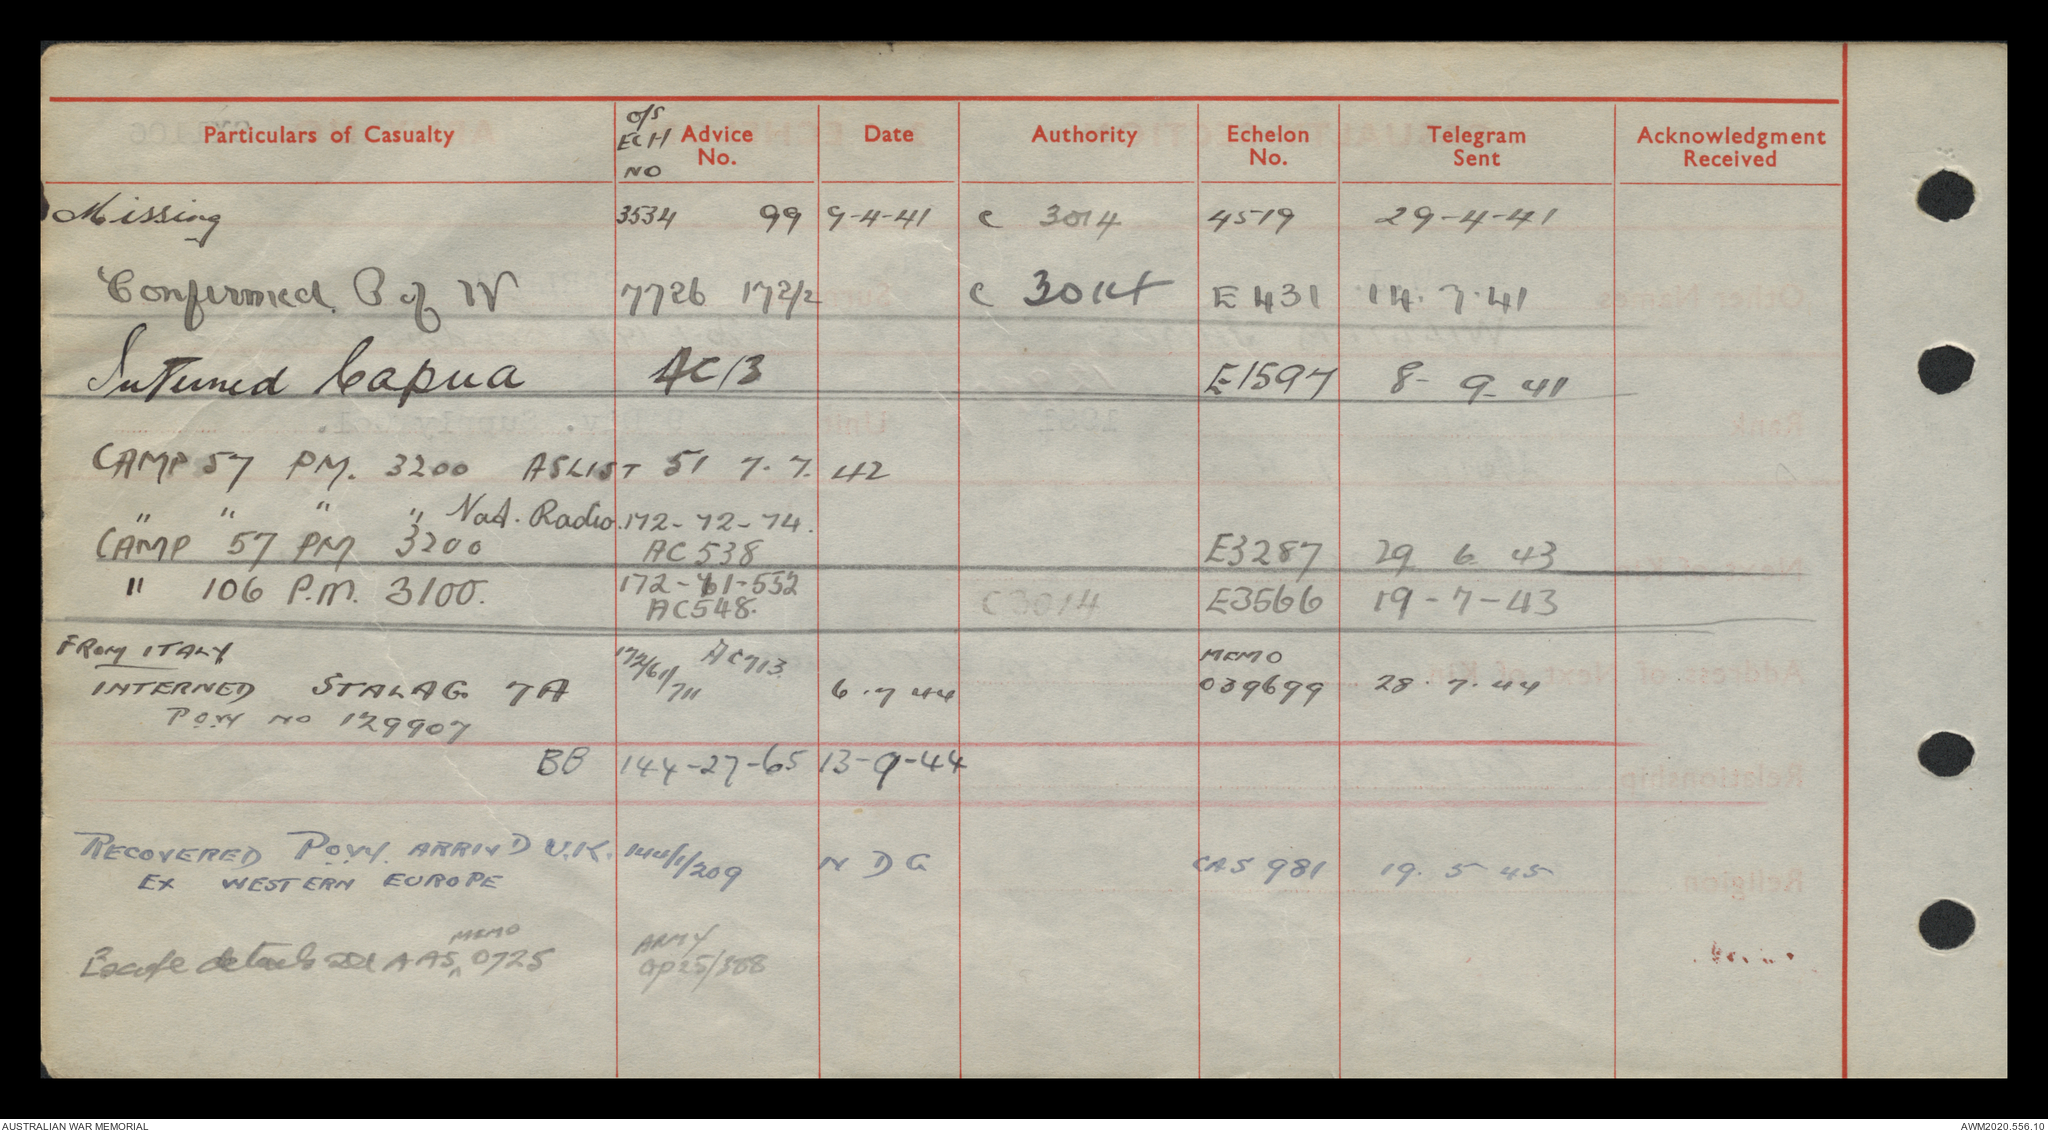 Particulars of Casualty O/S ECH NO Advice No. Date Authority Echelon No. Telegram Sent Acknowledgment Received
Missing 3534 99 9-4-41 C 3014 4519 29-4-41
Confirmed P of W 7726 172/2 C 3014 E 431 14.7.41
Interned Capua AC13 E1597 8-9-41
CAMP 57 PM. 3200 ASLIST 51 7.7.42
" " " " Nat. Radio. 172-72-74.
CAMP 57 PM 3200 AC 538 E3287 29 6 43
" 106 P.M. 3100. 172-61-552 AC548. C3014 E3566 19-7-43
FROM ITALY 172/61/711 AC713. MEMO
INTERNED STALAG 7A 6.7.44 039699 28.7.44
POW NO 129907
BB 144-27-65 13-9-44
RECOVERED POW. ARRIVD U.K. 144/1/209 N D G CAS 981 19.5.45
EX WESTERN EUROPE
Escape details see AAS MEMO 0725 ARMY
AUSTRALIAN WAR MEMORIAL AWM2020.556.10